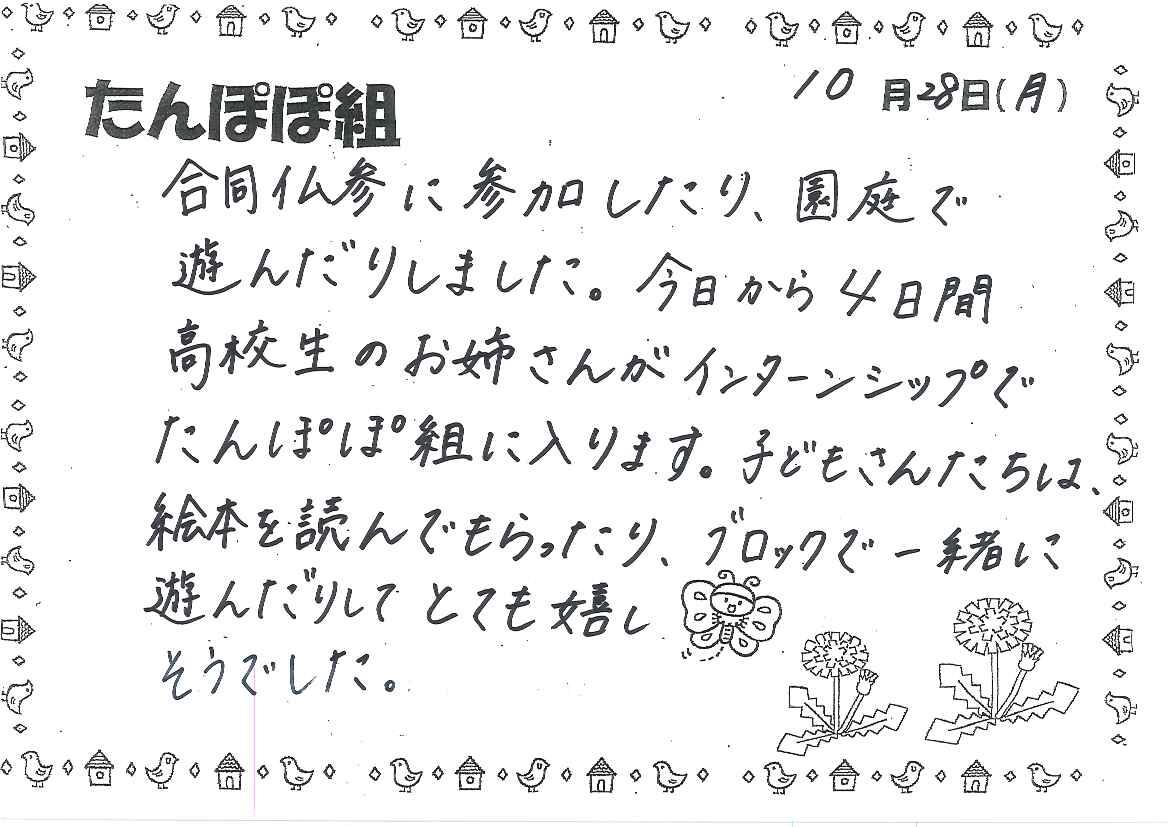 たんぽぽ組
10月28日(月)
合同仏参に参加したり、園庭で
遊んだりしました。今日から4日間
高校生のお姉さんがインターンシップで
たんぽぽ組に入ります。子どもさんたちは、
絵本を読んでもらったり、ブロックで一緒に
遊んだりしてとても嬉し
そうでした。